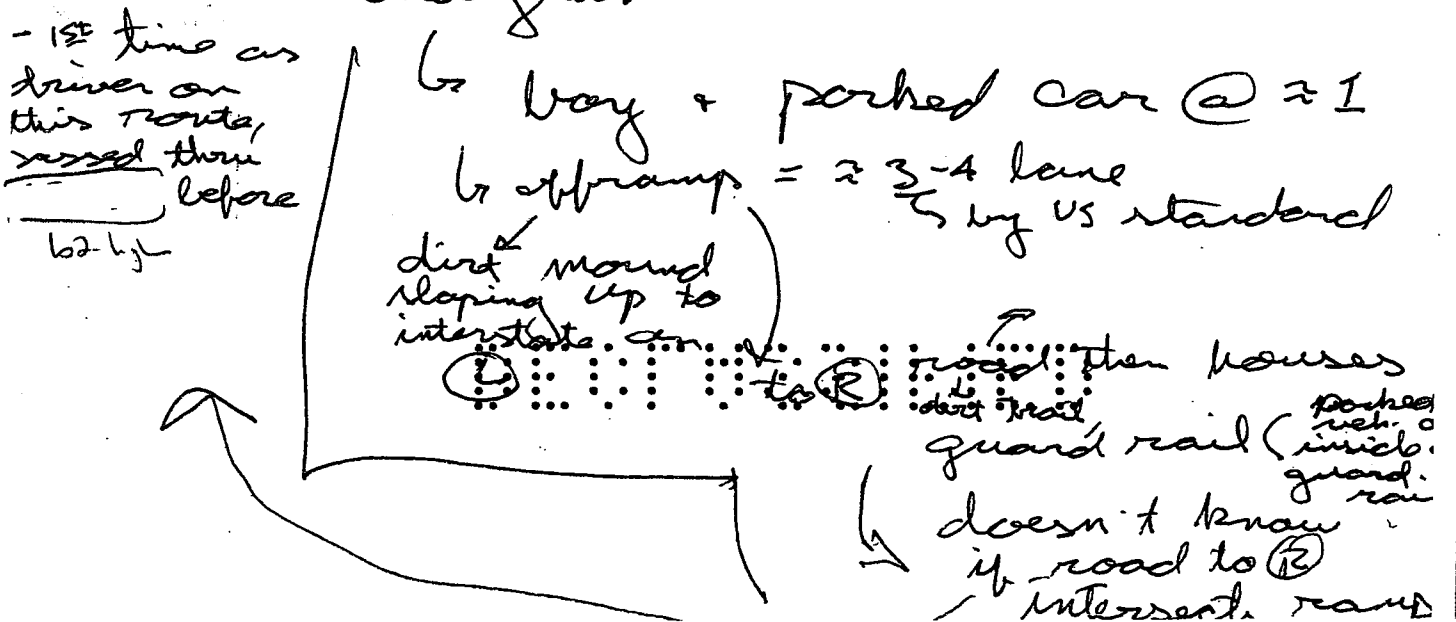 - 1st time as
driver on
this route,
passed thru
before
b2-high
↳ boy + parked car @ ≈ 1
↳ offramp = ≈ 3-4 lane
↳ by US standard
dirt mound
sloping up to
interstate on
Ⓛ
to Ⓡ
road then houses
dirt trail,
guard rail (parked
veh.
inside
guard
doesn't know
if road to Ⓡ
intersect